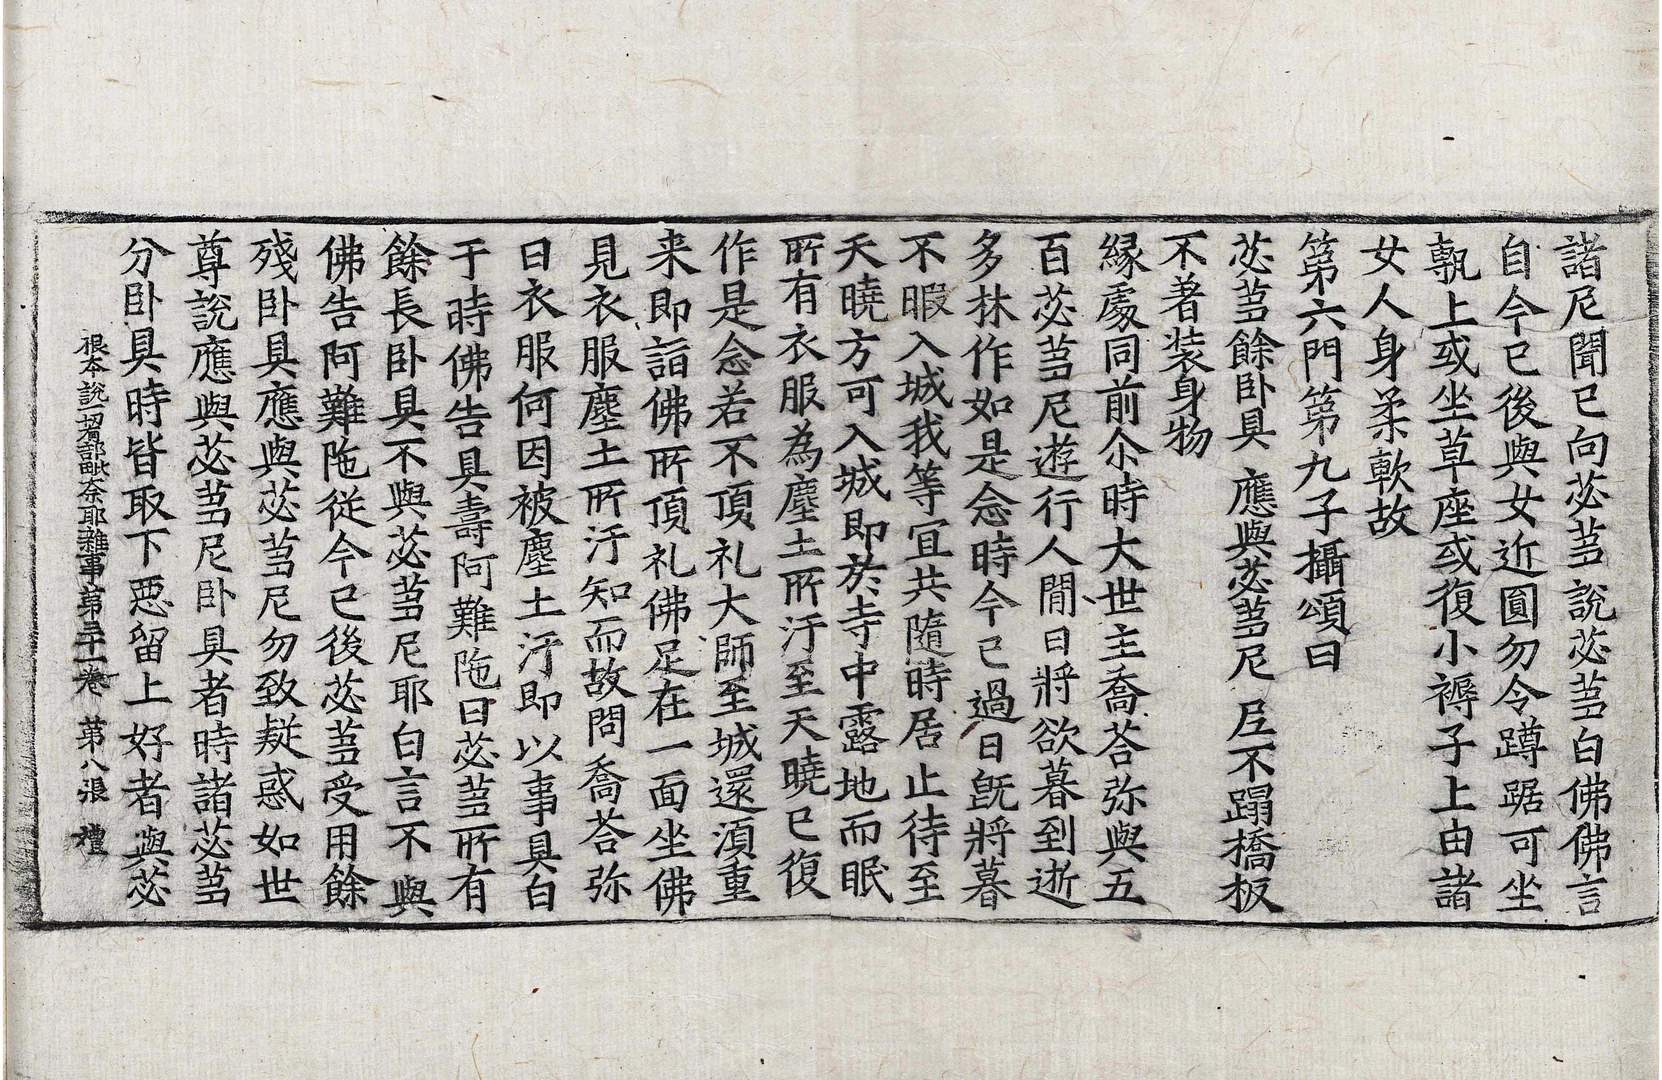 諸尼聞已向苾蒭說苾蒭白佛佛言
自今已後與女近圓勿令蹲踞可坐
氎上或坐草座或復小褥子上由諸
女人身柔軟故
第六門第九子攝頌曰
苾蒭餘卧具 應與苾蒭尼 尼不蹋橋板
不著装身物
緣處同前尒時大世主喬荅弥與五
百苾蒭尼遊行人間日將欲暮到逝
多林作如是念時今已過日旣將暮
不暇入城我等宜共隨時居止待至
天曉方可入城即於寺中露地而眠
所有衣服為塵土所汙至天曉已復
作是念若不頂礼大師至城還湏重
来即詣佛所頂礼佛足在一面坐佛
見衣服塵土所汙知而故問喬荅弥
曰衣服何因被塵土汙即以事具白
于時佛告具壽阿難陁曰苾蒭所有
餘長卧具不與苾蒭尼耶白言不與
佛告阿難陁從今已後苾蒭受用餘
殘卧具應與苾蒭尼勿致疑惑如世
尊說應與苾蒭尼卧具者時諸苾蒭
分卧具時皆取下惡留上好者與苾
根本說一切有部毗奈耶雜事第三十一卷 第八張 禮